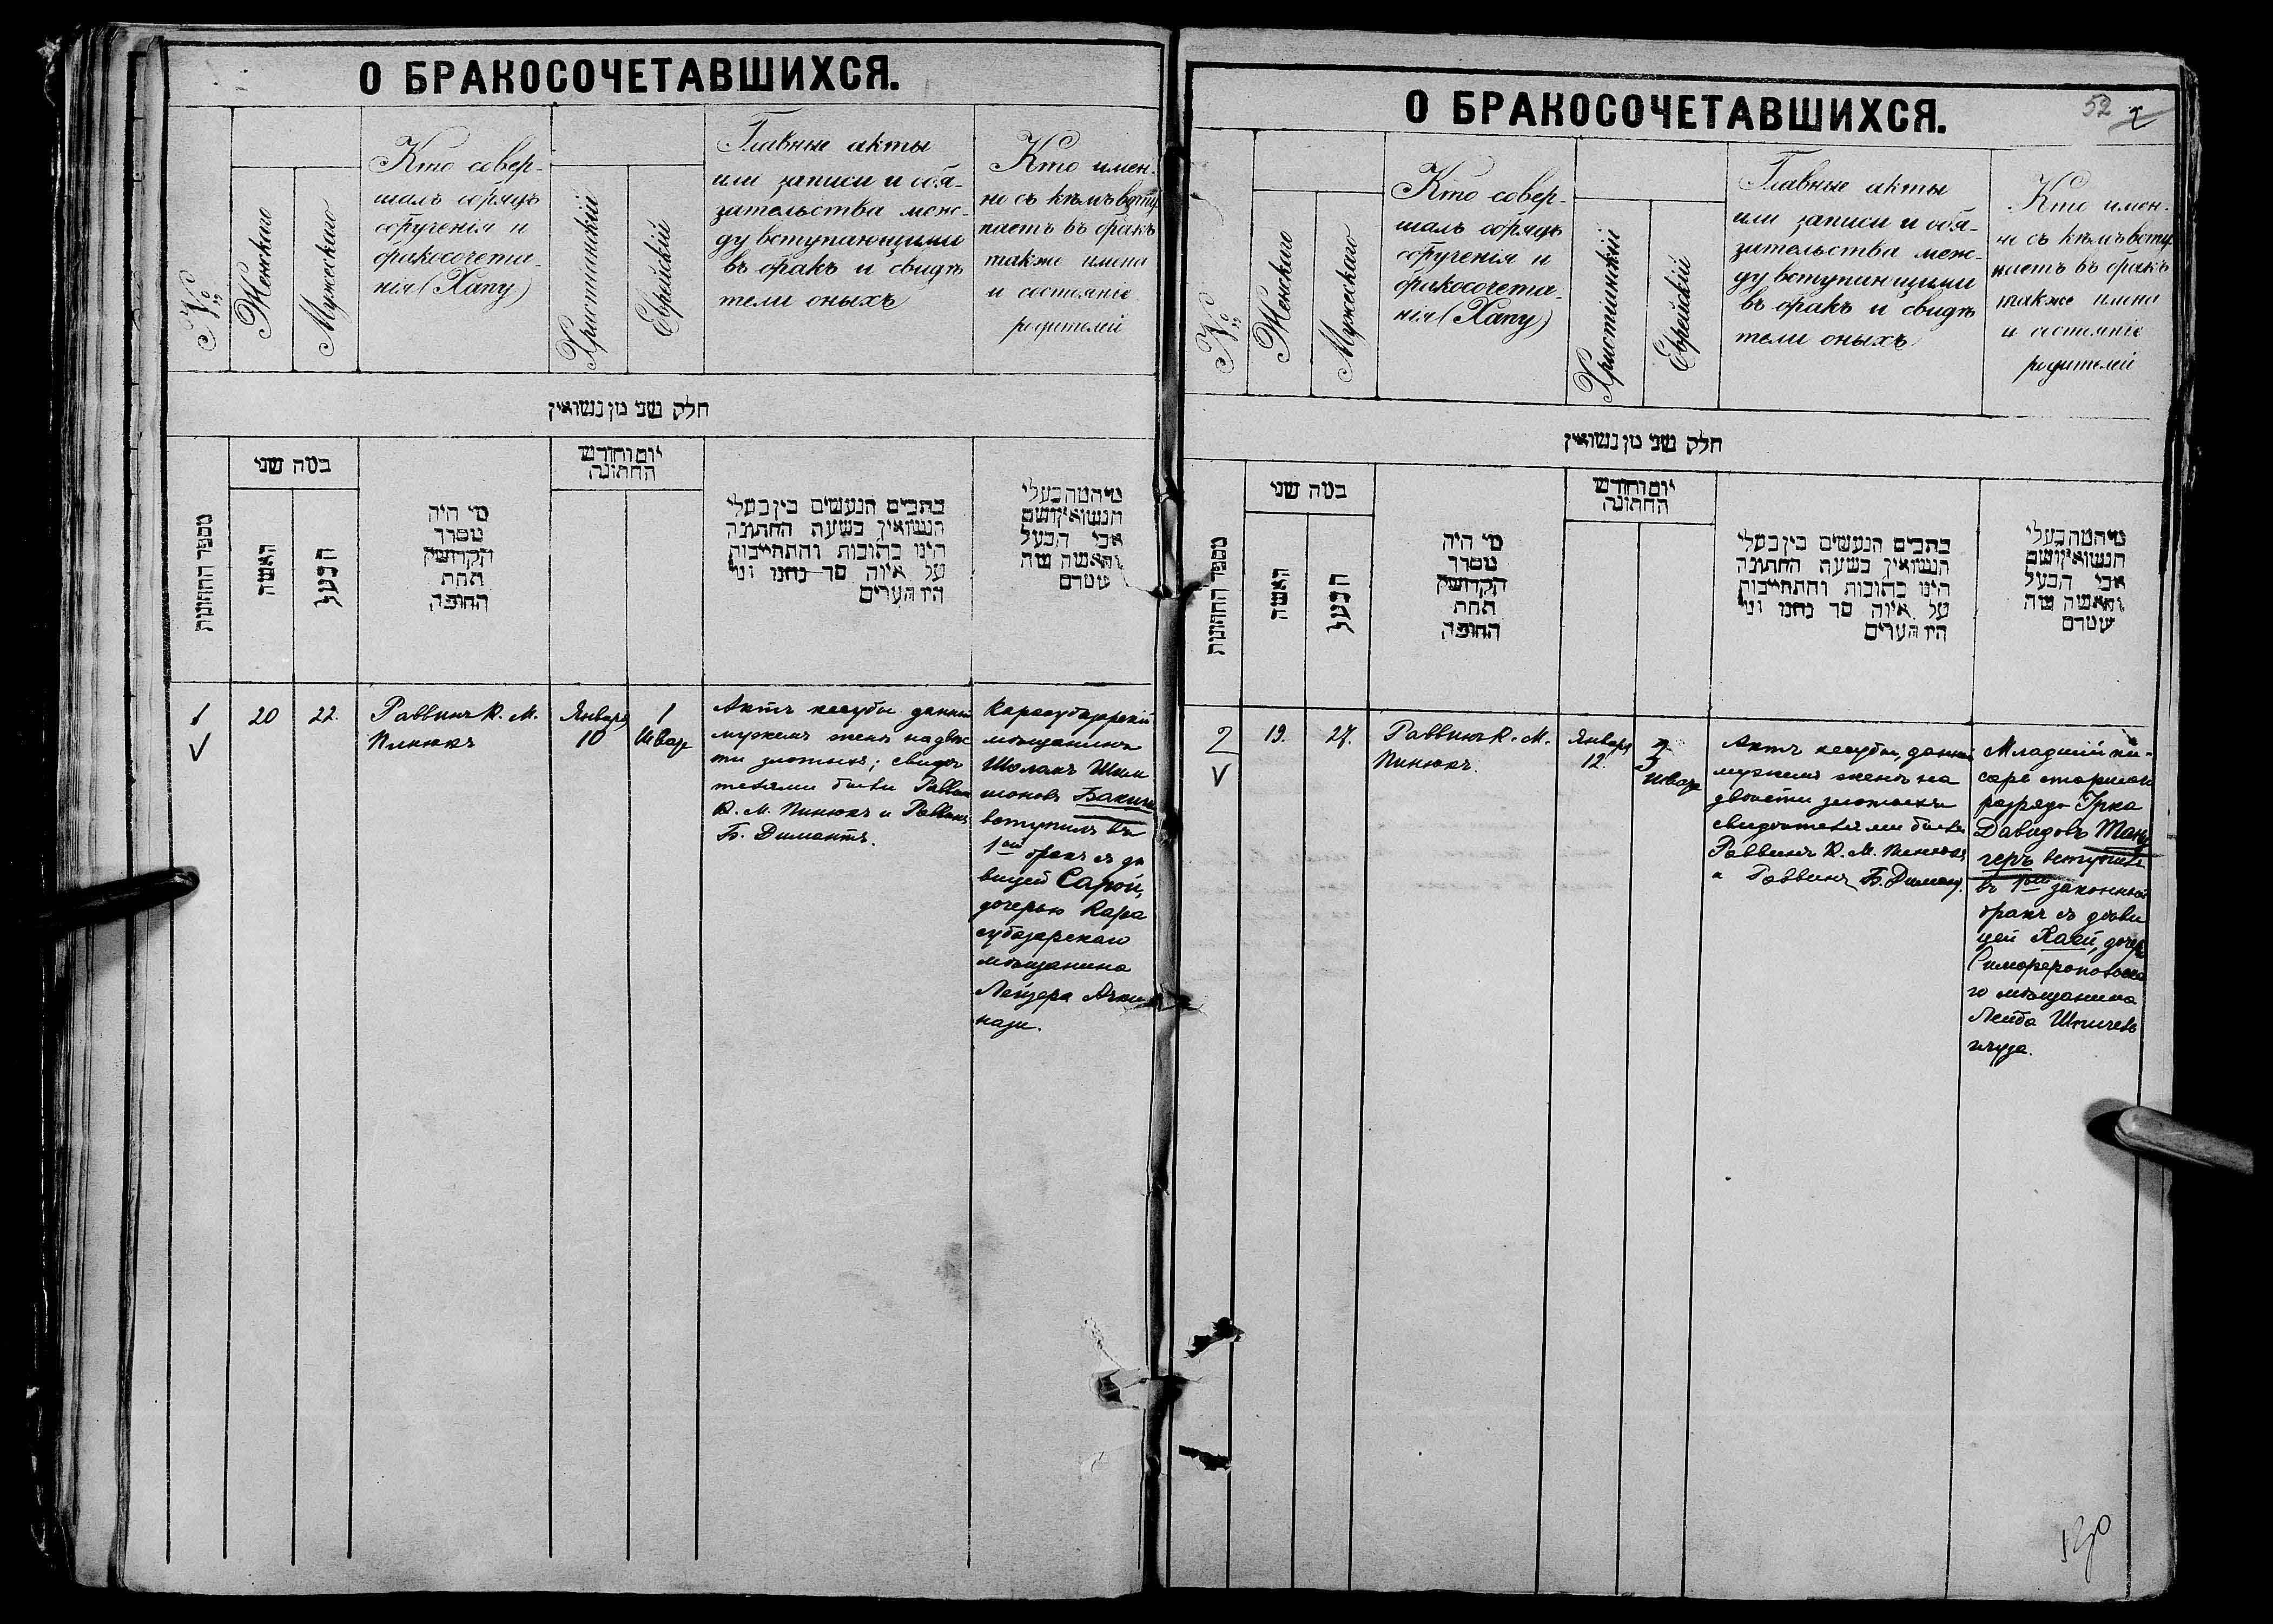 О БРАКОСОЧЕТАВШИХСЯ.
№
Женскаго
Мужескаго
Кто совер-
шалъ обрядъ
обрученія и
бракосочета-
нія (Хапу)
Христіанскій
Еврейскій
Главные акты
или записи и обя-
зательства меж-
ду вступающими
въ бракъ и свидѣ
тели оныхъ
Кто имен-
но съ кѣмъ всту
паетъ въ бракъ
также имена
и состояніе
родителей
חלק שני מן נשואין
מספר החתונות
כמה שני
האשה
הבעל
מי היה
מסדר
הקדושין
תחת
החופה
יום וחודש
החתונה
כתבים הנעשים בין בעלי
הנשואין בשעת החתונה
הינו כתובות והתחייבות
על איזה סך נתנו ומי
היו העדים
מי המה בעלי
הנשואין ושם
אבי הבעל
והאשה ומה
שמדם
1
20
22.
Раввинъ К. М.
Пинюкъ
Января
10
1
Шват
Актъ кесубы данный
мужемъ женѣ на двѣс
ти злотыхъ; свидѣ
телями были Раввин
К. М. Пинюкъ и Раввинъ
Б. Димантъ.
Карасубазарскій
мѣщанинъ
Шоломъ Шим
моновъ Бакши
вступилъ въ
1ый бракъ съ дѣ
вицей Сарой,
дочерью Кара
субазарскаго
мѣщанина
Лейзера Ачки
нази.
О БРАКОСОЧЕТАВШИХСЯ.
52
№
Женскаго
Мужескаго
Кто совер-
шалъ обрядъ
обрученія и
бракосочета-
нія (Хапу)
Христіанскій
Еврейскій
Главные акты
или записи и обя-
зательства меж-
ду вступающими
въ бракъ и свидѣ
тели оныхъ
Кто имен-
но съ кѣмъ всту
паетъ въ бракъ
также имена
и состояніе
родителей
חלק שני מן נשואין
מספר החתונות
כמה שני
האשה
הבעל
מי היה
מסדר
הקדושין
תחת
החופה
יום וחודש
החתונה
כתבים הנעשים בין בעלי
הנשואין בשעת החתונה
הינו כתובות והתחייבות
על איזה סך נתנו ומי
היו העדים
מי המה בעלי
הנשואין ושם
אבי הבעל
והאשה ומה
שמדם
2
19.
27.
Раввинъ К. М.
Пинюкъ.
Января
12.
3
Шват
Актъ кесубы, данный
мужемъ женѣ на
двѣсти злотыхъ
свидѣтелями были
Раввинъ К. М. Пинюкъ
и Раввинъ Б. Димант.
Младшій пи-
сарь старшаго
разряда Срка
Давидовъ Тан
геръ вступилъ
въ 1ый законный
бракъ съ дѣви
цей Хаей, дочер
Симферопольска
го мѣщанина
Лейба Шпигель
глуза.